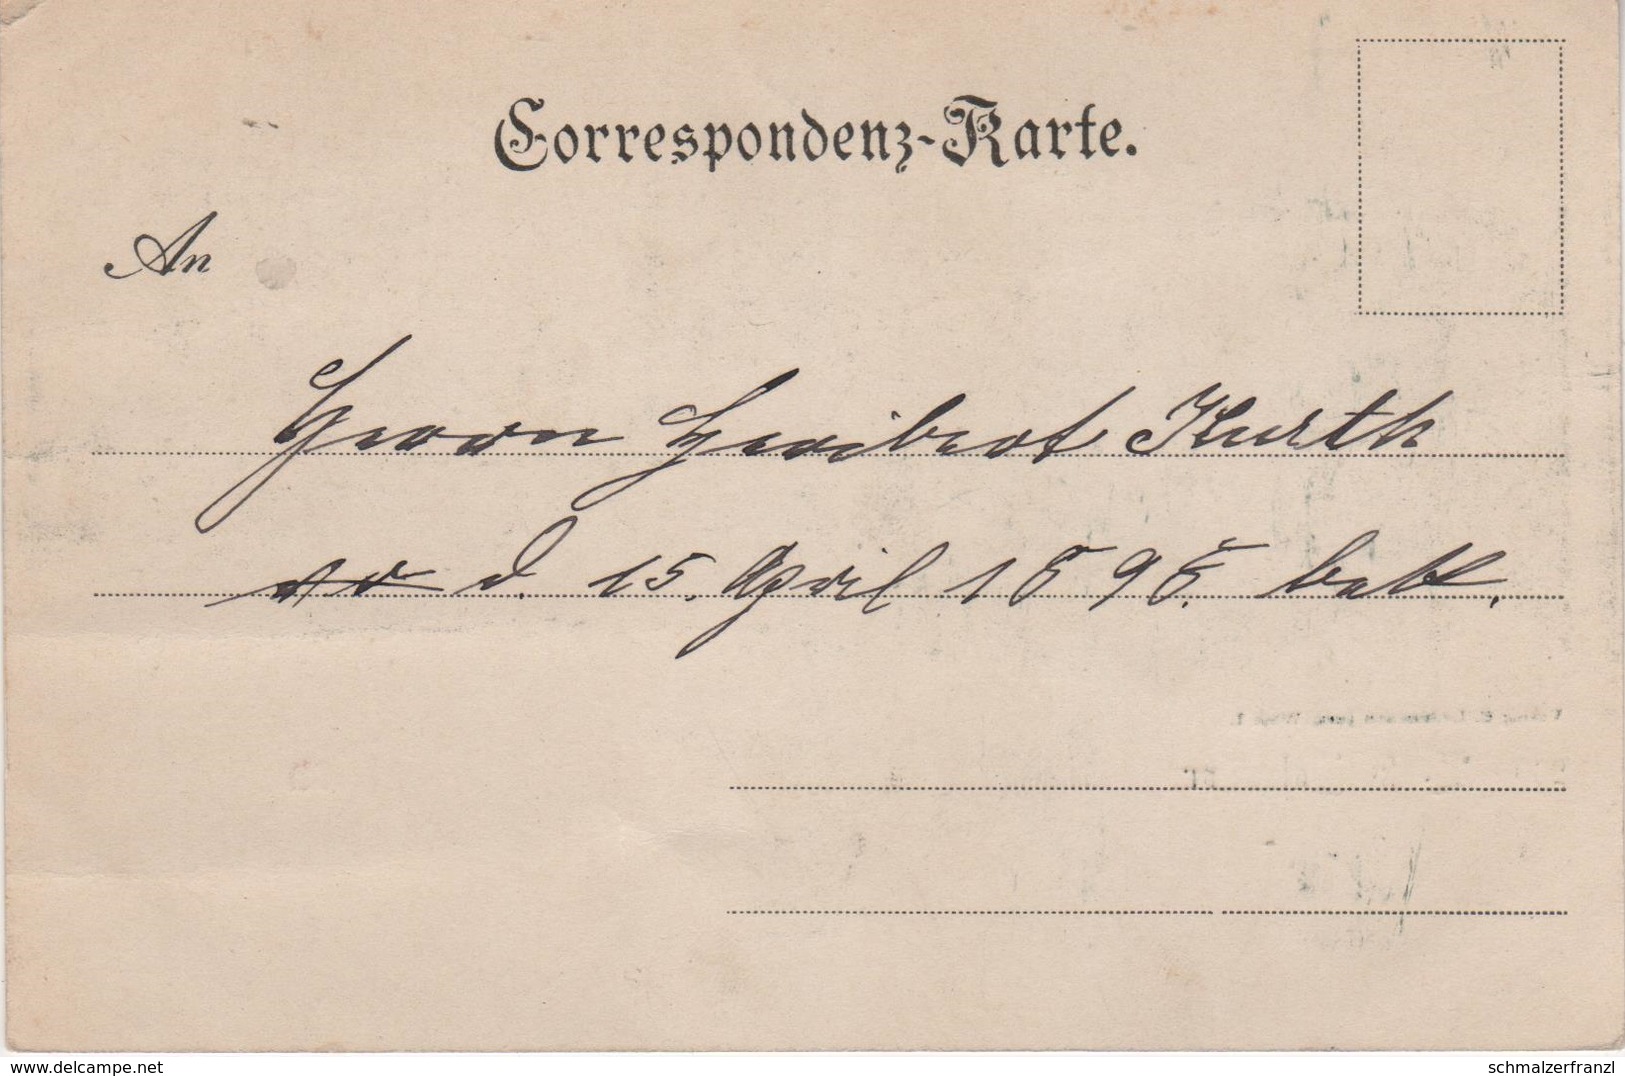 Correspondenz-Karte.
An
Herrn Heribert Kurth
d. 15. April 1898.
www.delcampe.net
schmalzerfranzl